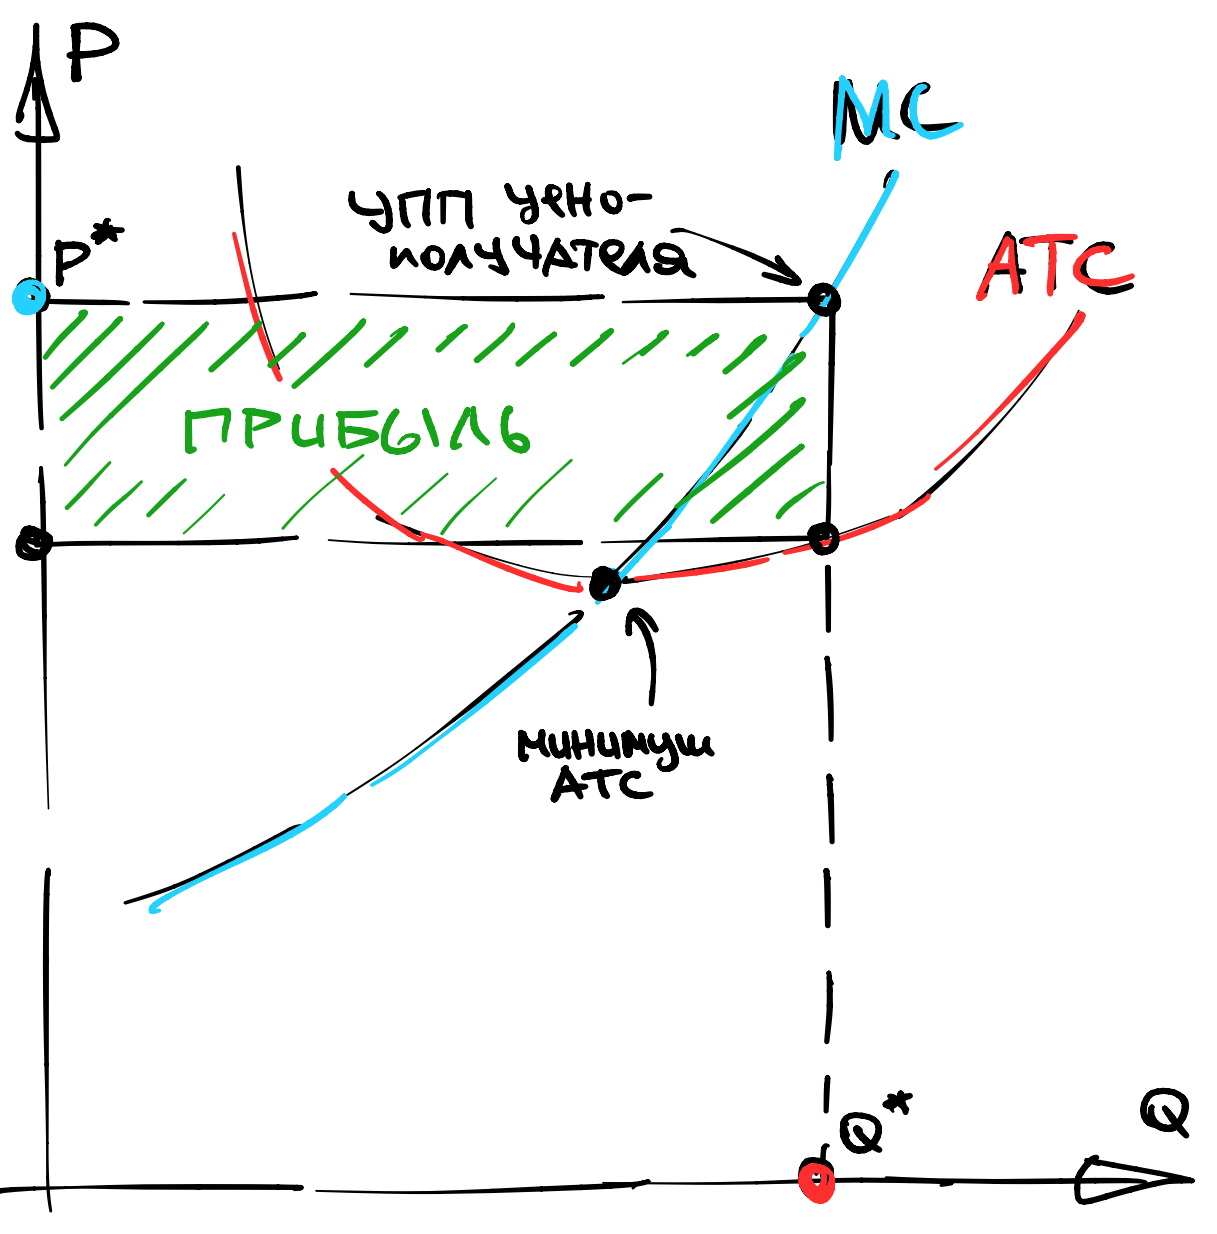 P
MC
P*
УПП цено-
получателя
ATC
ПРИБЫЛЬ
минимум
ATC
Q*
Q